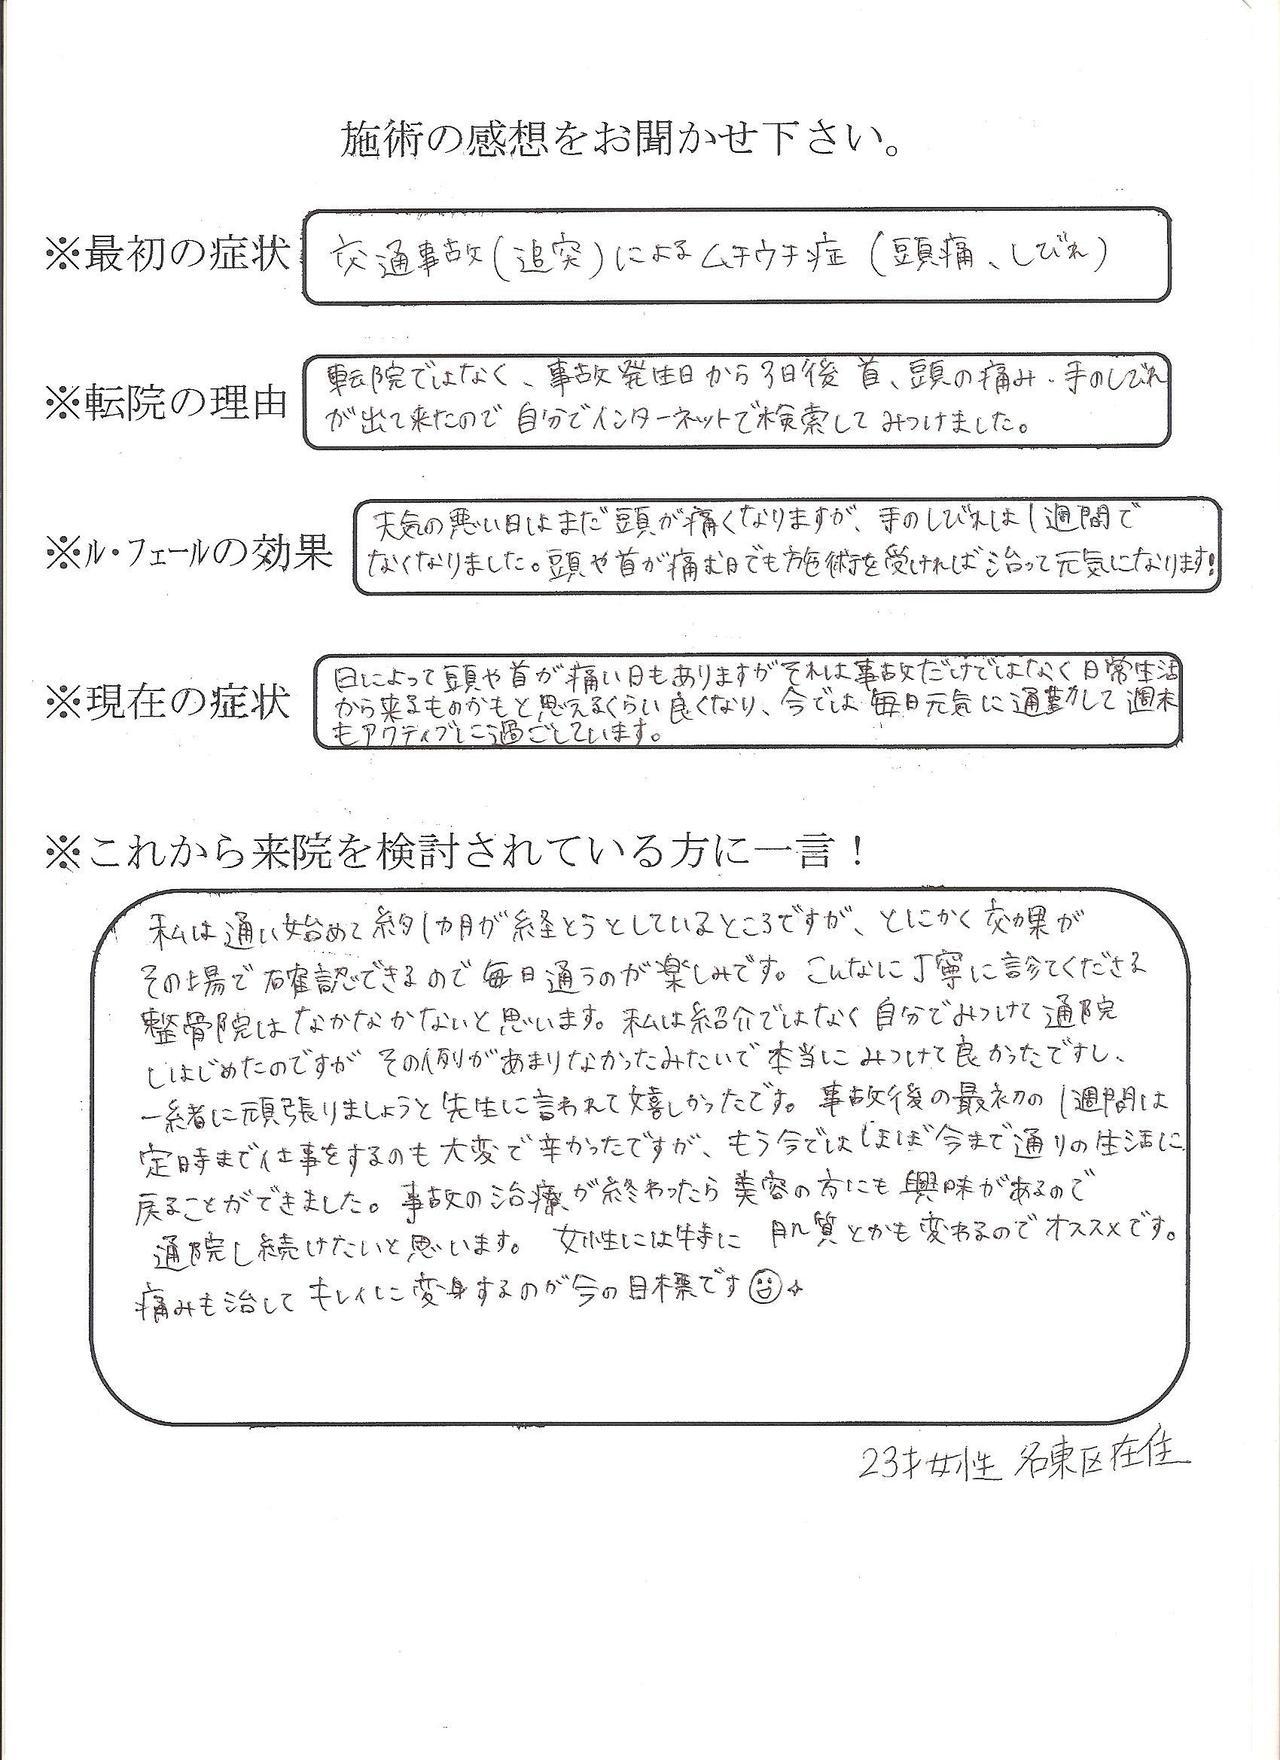 施術の感想をお聞かせ下さい。
※最初の症状
交通事故(追突)によるムチウチ症(頭痛、しびれ)
※転院の理由
転院ではなく、事故発生日から3日後 首、頭の痛み・手のしびれ
が出て来たので自分でインターネットで検索してみつけました。
※ル・フェールの効果
天気の悪い日はまだ頭が痛くなりますが、手のしびれは1週間で
なくなりました。頭や首が痛む日でも施術を受ければ治って元気になります!
※現在の症状
日によって頭や首が痛い日もありますがそれは事故だけではなく日常生活
から来るものかもと思えるくらい良くなり、今では毎日元気に通勤して週末
もアクティブに過ごしています。
※これから来院を検討されている方に一言!
私は通い始めて約1カ月が経とうとしているところですが、とにかく効果が
その場で確認できるので毎日通うのが楽しみです。こんなに丁寧に診てくださる
整骨院はなかなかないと思います。私は紹介ではなく自分でみつけて通院
しはじめたのですがその例があまりなかったみたいで本当にみつけて良かったですし、
一緒に頑張りましょうと先生に言われて嬉しかったです。事故後の最初の1週間は
定時まで仕事をするのも大変で辛かったですが、もう今ではほぼ今まで通りの生活に
戻ることができました。事故の治療が終わったら美容の方にも興味があるので
通院し続けたいと思います。女性には特に肌質とかも変わるのでオススメです。
痛みも治してキレイに変身するのが今の目標です
23才女性 名東区在住